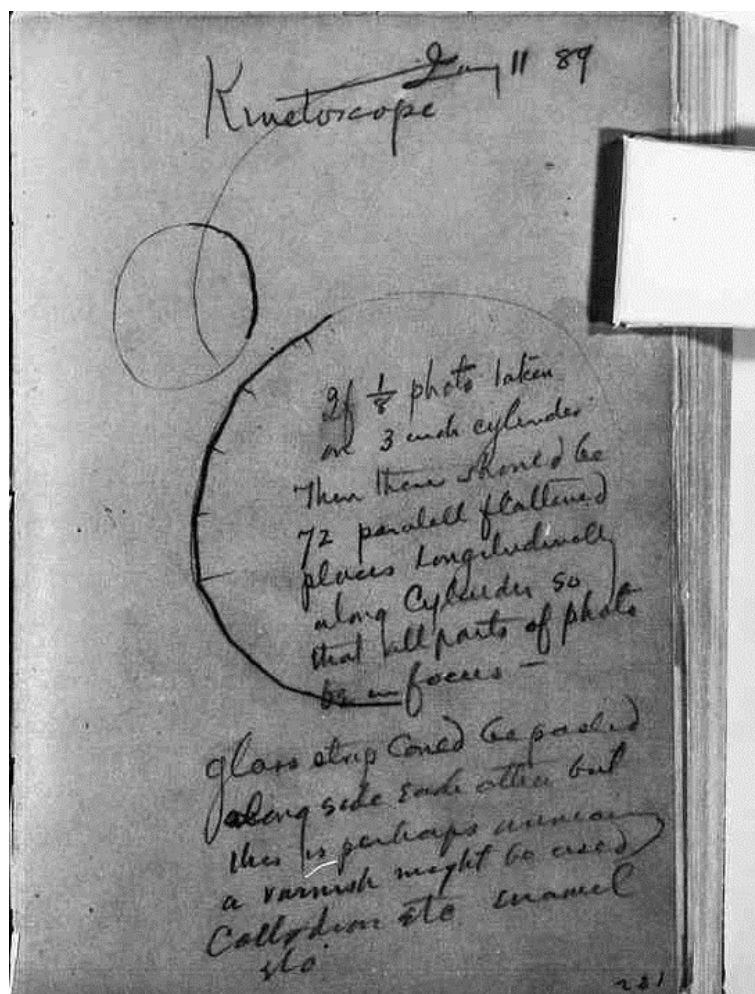 Jany 11 89
Kinetoscope
If 1/8 photo taken
on 3 inch cylinder
Then there should be
72 paralell flattened
places Longitudinally
along Cylinder so
that all parts of photo
be in focus —
glass strip could be pasted
along side Each other but
this is perhaps
a varnish might be used
Collodion etc enamel
etc
221